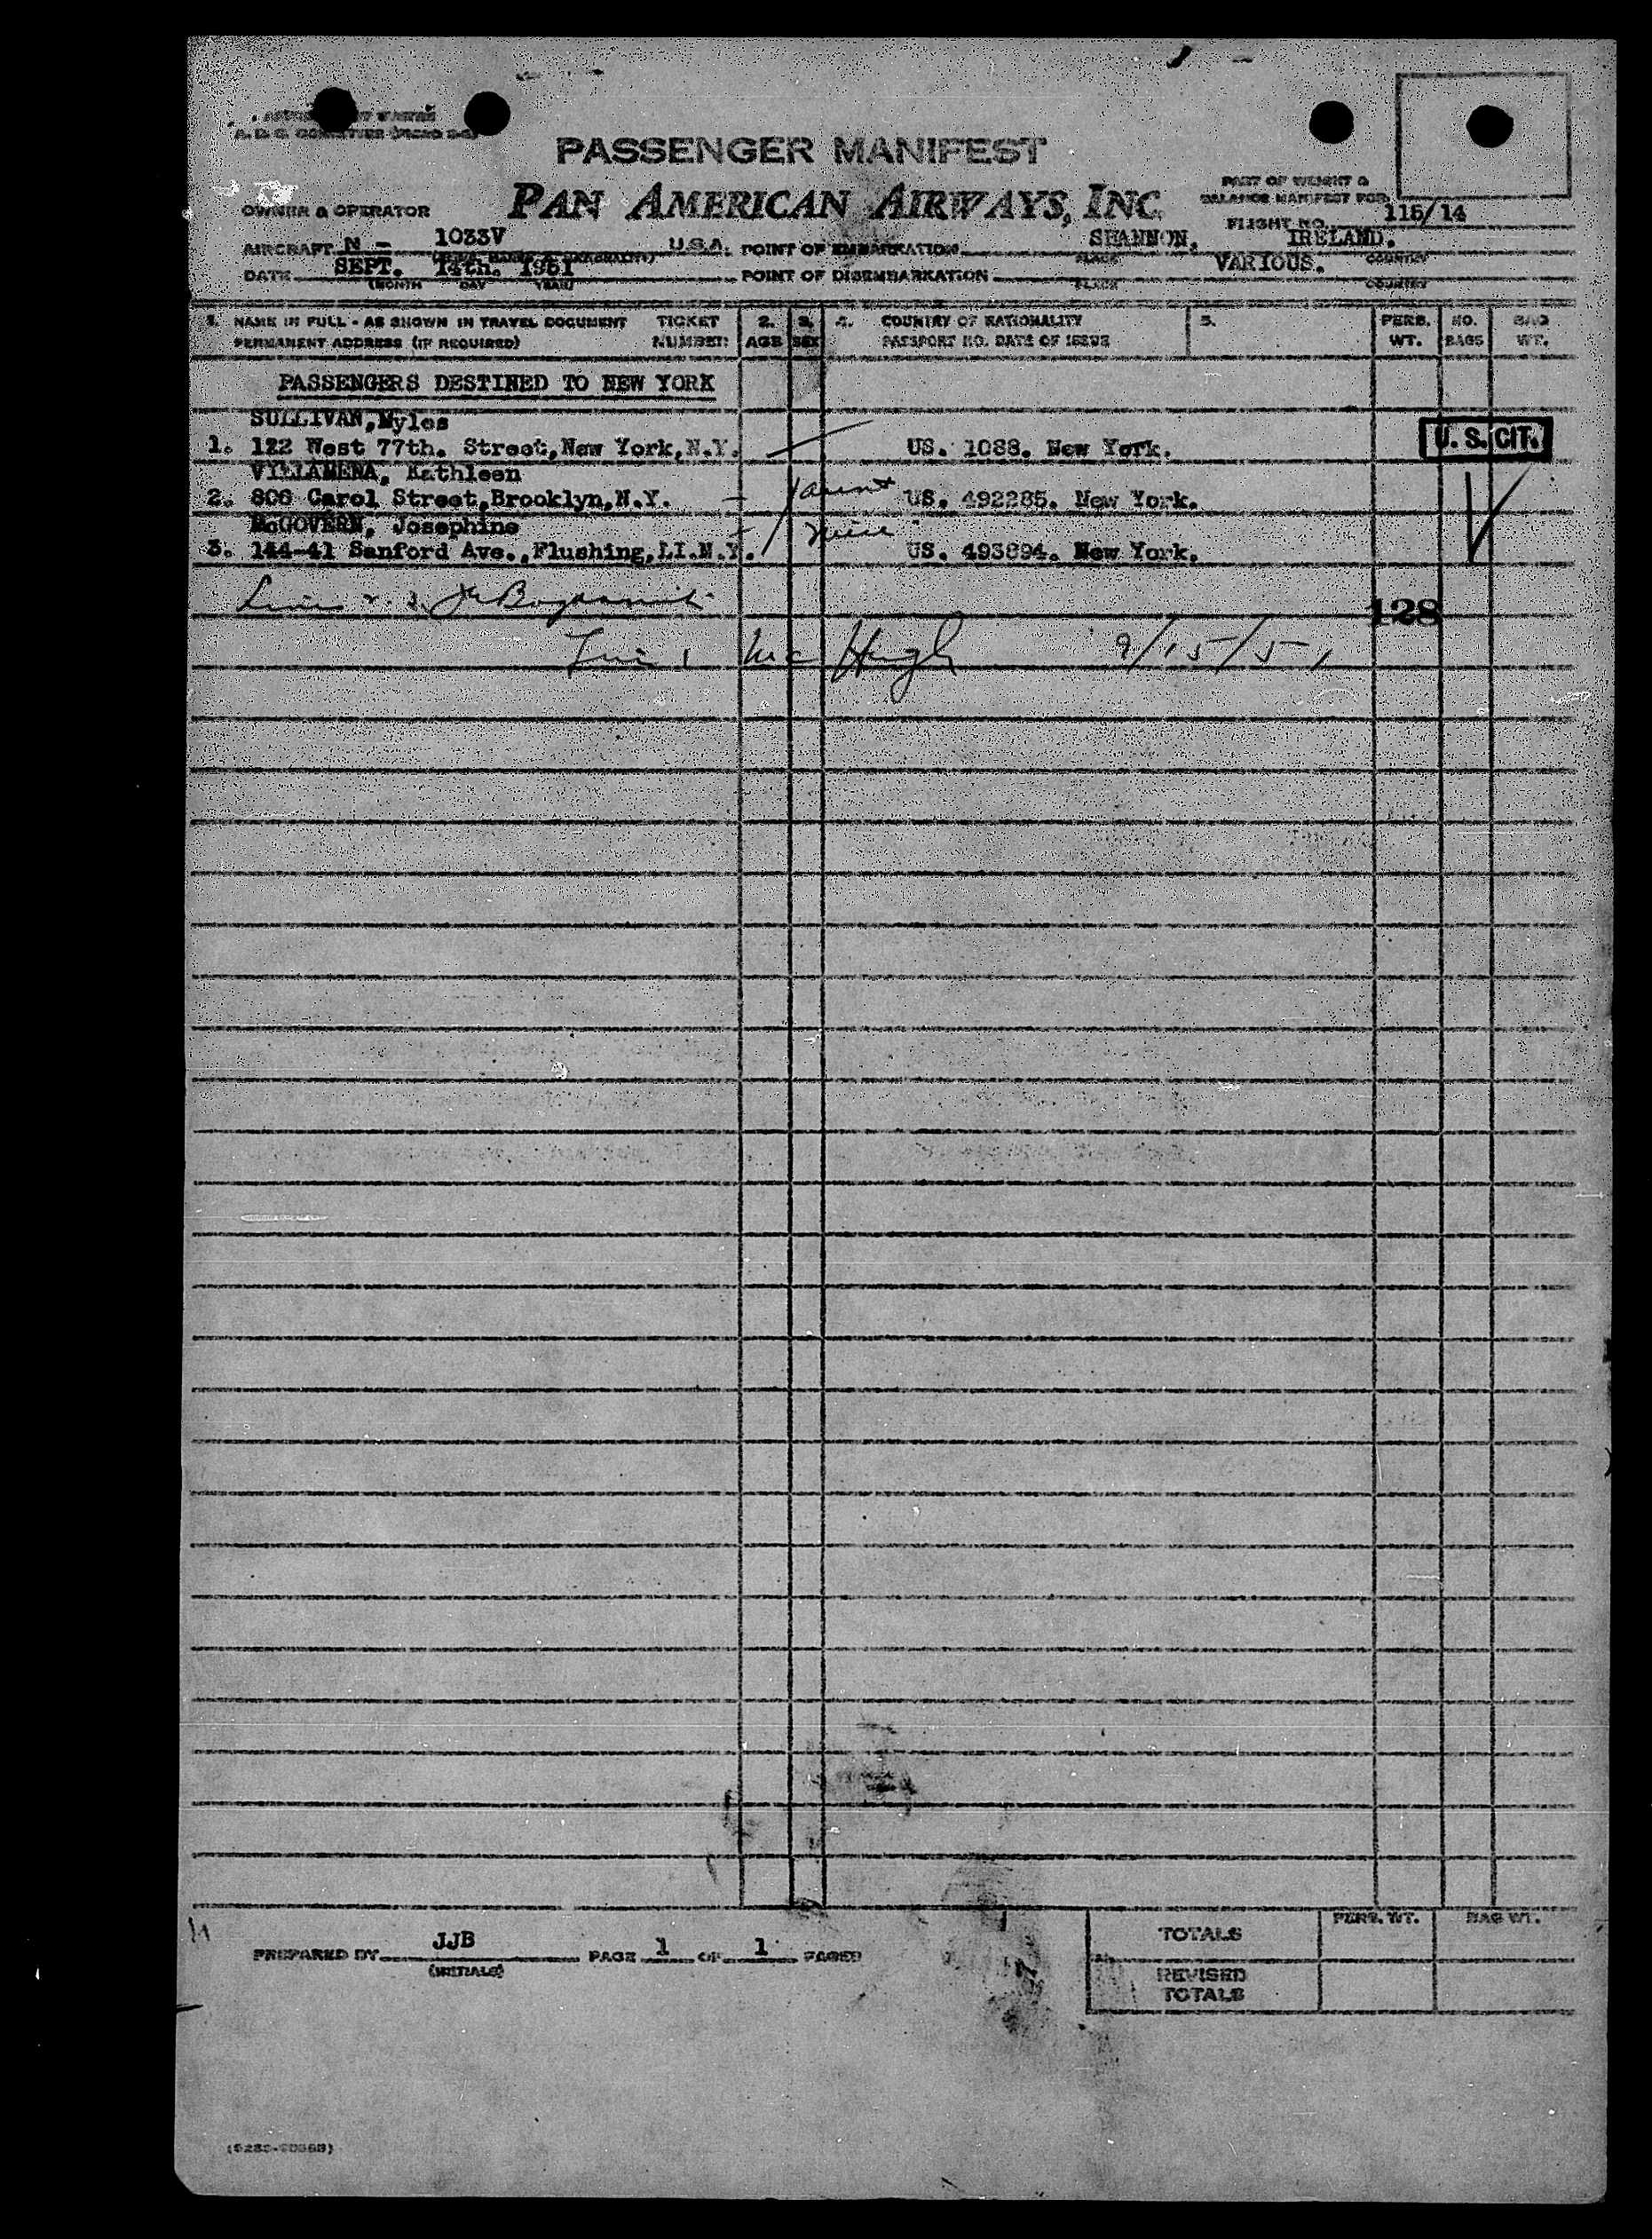 PASSENGER MANIFEST
PAN AMERICAN AIRWAYS, INC.
PART OF WEIGHT &
BALANCE MANIFEST FOR
OWNER & OPERATOR
FLIGHT NO. 115/14
AIRCRAFT N - 1033V U.S.A. POINT OF EMBARKATION SHANNON, IRELAND.
PLACE COUNTRY
DATE SEPT. 14th. 1951 POINT OF DISEMBARKATION VARIOUS.
(MONTH DAY YEAR) PLACE COUNTRY
1. NAME IN FULL - AS SHOWN IN TRAVEL DOCUMENT TICKET 2. 3. 4. COUNTRY OF NATIONALITY 5. PERS. NO. BAG
PERMANENT ADDRESS (IF REQUIRED) NUMBER AGE SEX PASSPORT NO. DATE OF ISSUE WT. BAGS WT.
PASSENGERS DESTINED TO NEW YORK
SULLIVAN, Myles
1. 122 West 77th. Street, New York, N.Y. US. 1088. New York. U.S. CIT.
VILLAMENA, Kathleen
2. 806 Carol Street, Brooklyn, N.Y. US. 492285. New York.
McGOVERN, Josephine
3. 144-41 Sanford Ave., Flushing, LI.N.Y. US. 493894. New York.
Line 2. 3.
128
Line 1 Mc Hugh 9/15/51
PREPARED BY JJB PAGE 1 OF 1 PAGES
(INITIALS)
PERS. WT. BAG WT.
TOTALS
REVISED
TOTALS